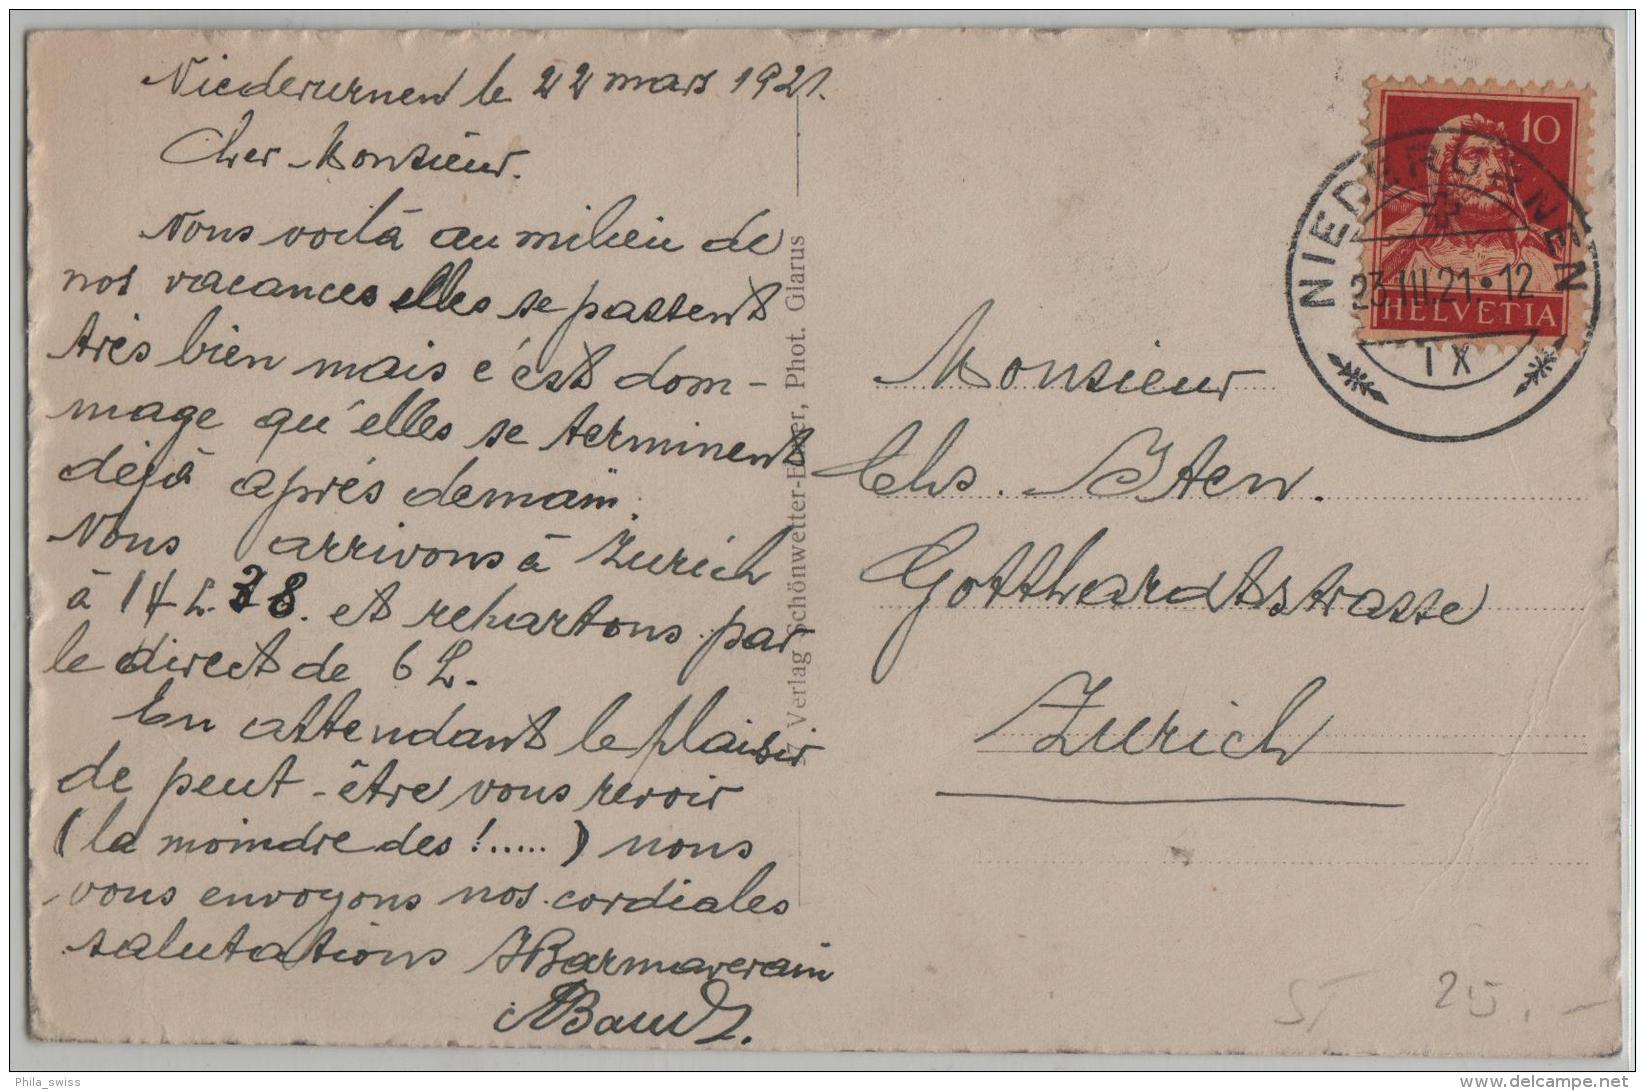 Niederurnen le 22 mars 1921.
Cher Monsieur.
Nous voilà au milieu de
nos vacances elles se passent
très bien mais c'est dom-
mage qu'elles se terminent
déjà après demain.
Nous arrivons à Zurich
à et repartons par
le direct de 6 h.
En attendant le plaisir
de peut-être vous revoir
(la moindre des !.....) nous
vous envoyons nos cordiales
salutations
Verlag Schönwetter-Elmer, Phot. Glarus
10
HELVETIA
NIEDERURNEN
23.III.21.12
IX
Monsieur
Chs. Iten.
Gotthardtstrasse
Zurich
ST 25.-
Phila_swiss
www.delcampe.net